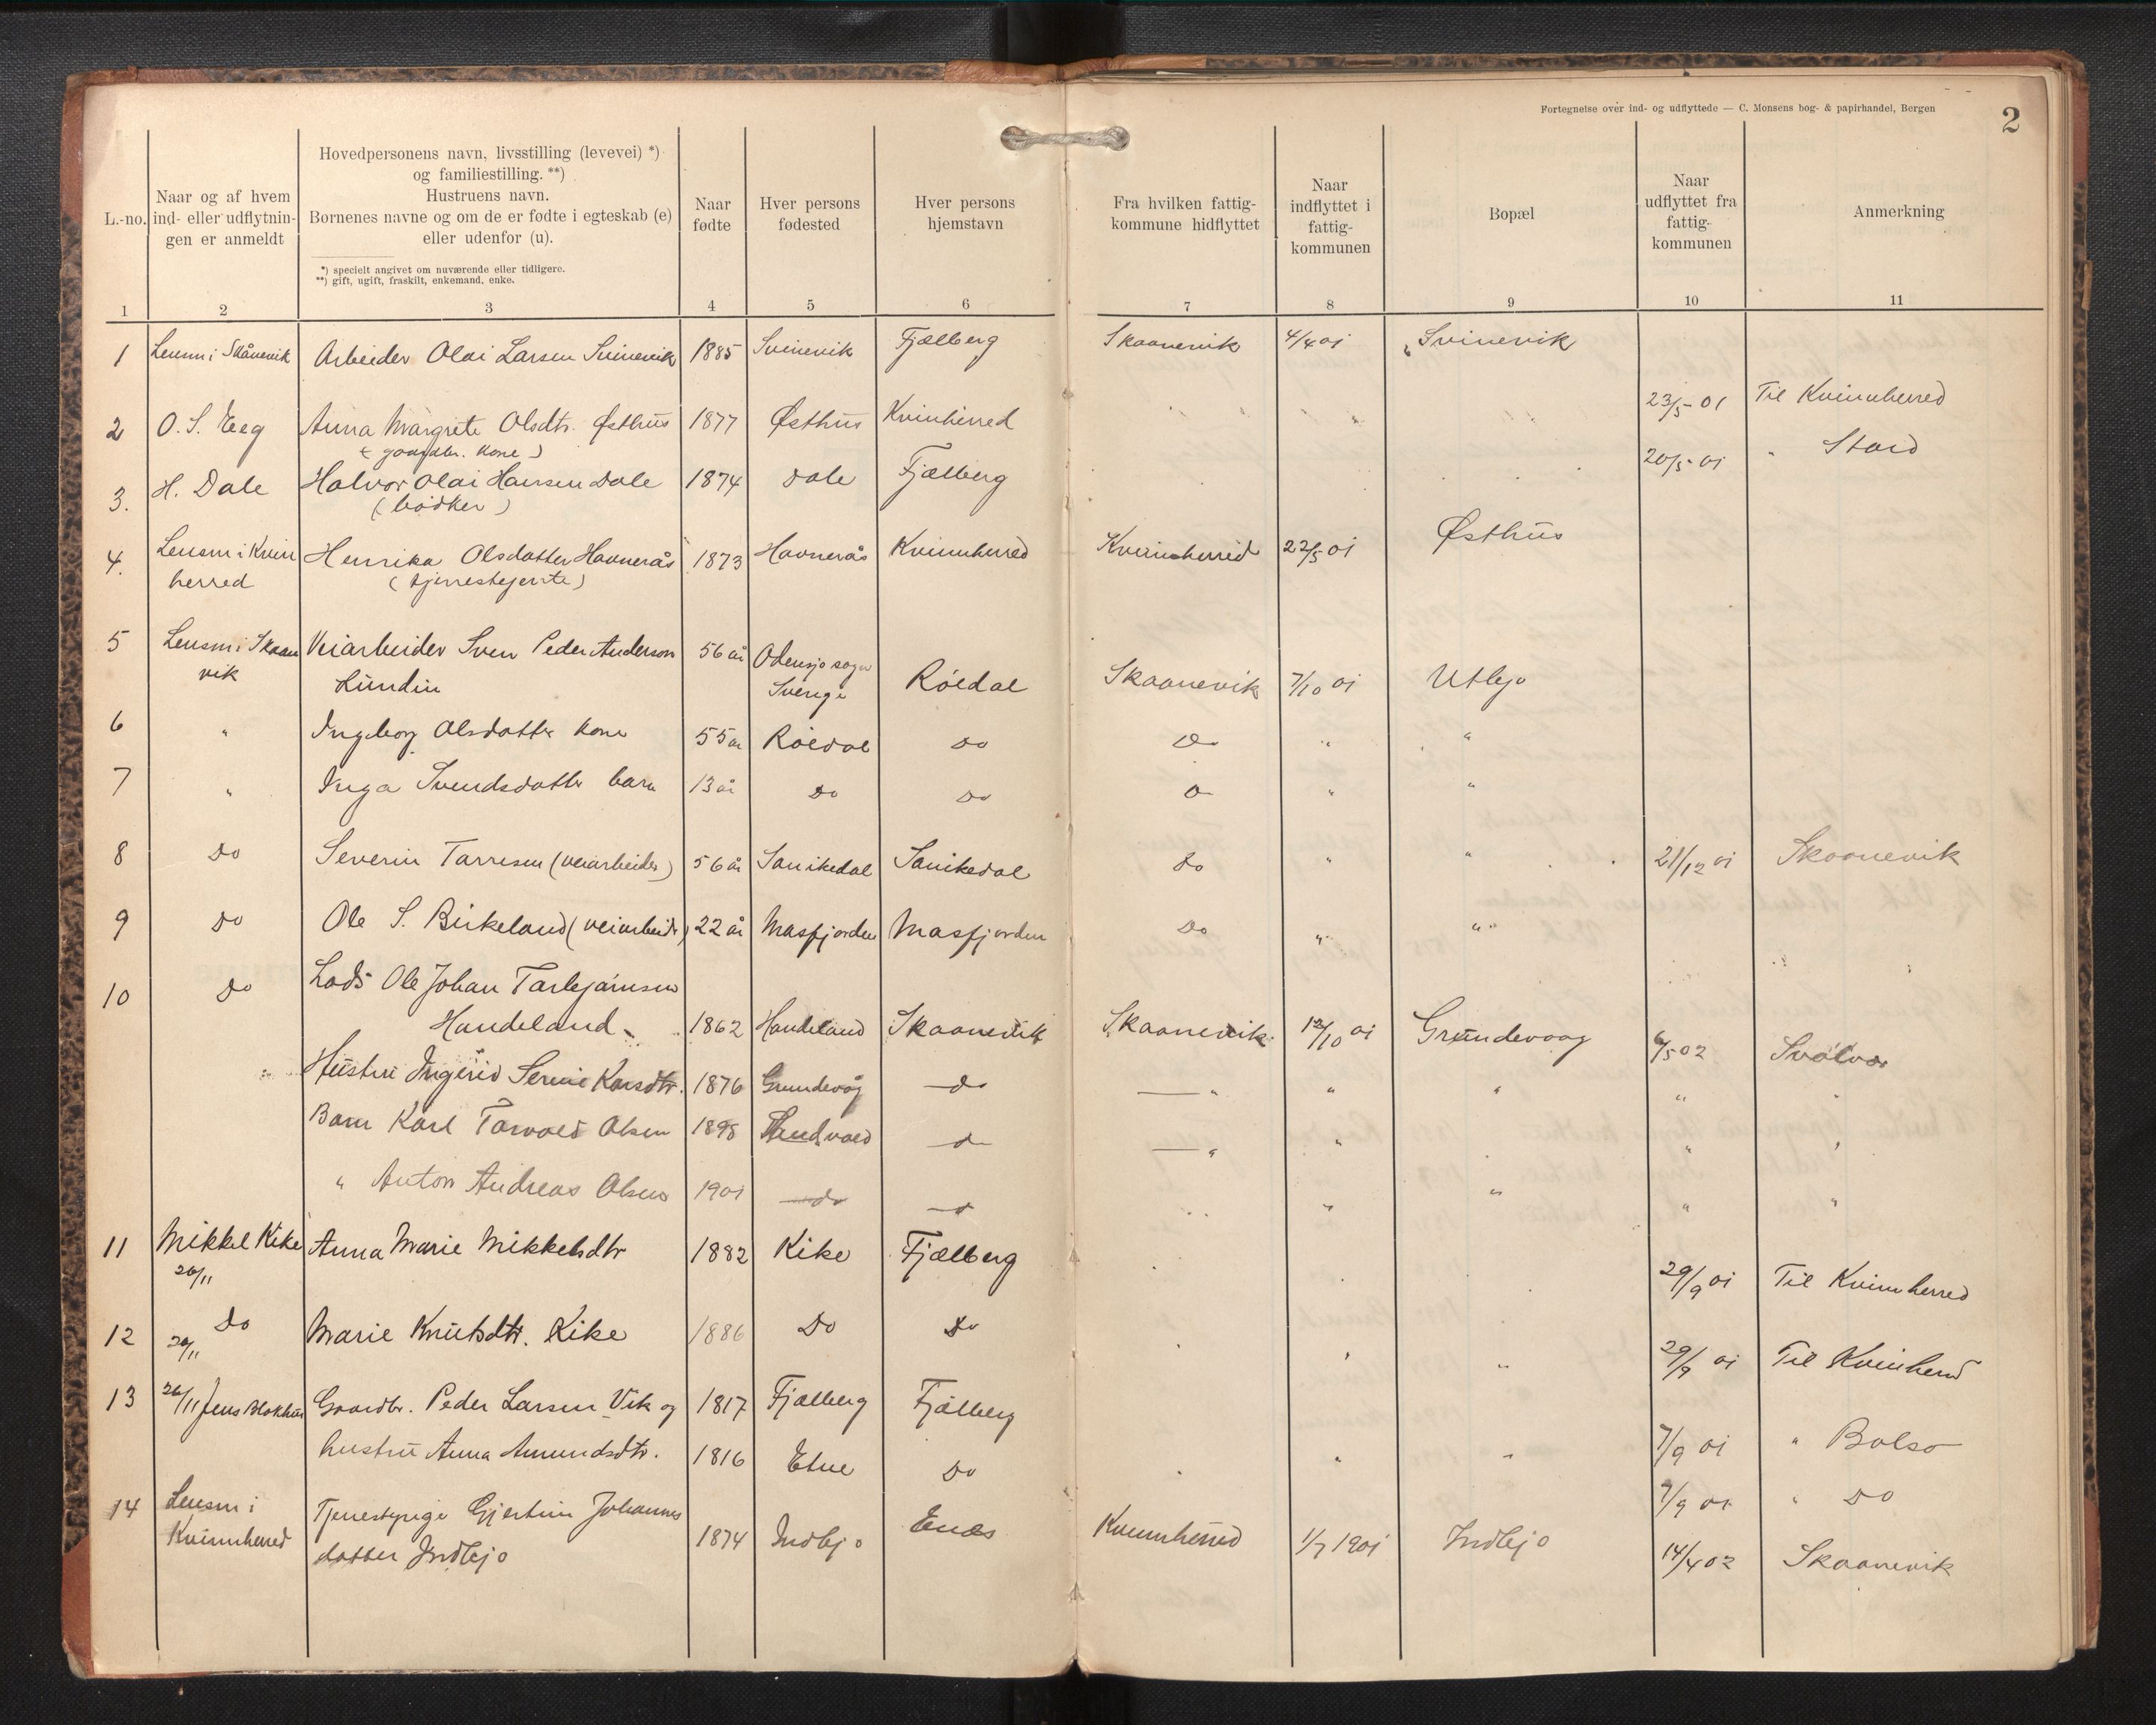 Fortegnelse over ind- og udflyttede — C. Monsens bog- & papirhandel, Bergen
2
L.-no.
Naar og af hvem
ind- eller udflytnin-
gen er anmeldt
Hovedpersonens navn, livsstilling (levevei) *)
og familiestilling. **)
Hustruens navn.
Børnenes navne og om de er fødte i egteskab (e)
eller udenfor (u).
*) specielt angivet om nuværende eller tidligere.
**) gift, ugift, fraskilt, enkemand, enke.
Naar
fødte
Hver persons
fødested
Hver persons
hjemstavn
Fra hvilken fattig-
kommune hidflyttet
Naar
indflyttet i
fattig-
kommunen
Bopæl
Naar
udflyttet fra
fattig-
kommunen
Anmerkning
1 2 3 4 5 6 7 8 9 10 11
1 Lensm i Skånevik Arbeider Olai Larsen Svinevik 1885 Svinevik Fjælberg Skaanevik 4/4 01 Svinevik
2 O. S. Eeg Anna Margrete Olsdtr. Østhus 1877 Østhus Kvinherred 23/5-01 Til Kvinnherred
(gaardbr. kone)
3. H. Dale Halvor Olai Hansen Dale 1874 Dale Fjælberg 20/5-01 " Stord
(bødker)
4. Lensm i Kvin Henrika Olsdatter Havnerås 1873 Havnerås Kvinnherred Kvinnherred 22/5 01 Østhus
herred (tjenestejente)
5 Lensm i Skaane Veiarbeider Sven Peder Anderson 56 år Odensjø sogn
vik Lundin Sverige Røldal Skaanevik 7/10 01 Utbjo
6 " Ingeborg Olsdatter kone 55 år Røldal Do Do " "
7 " Inga Svendsdatter barn 13 år Do Do Do " "
8 Do Severin Tarresen (veiarbeider) 56 år Sanikedal Sanikedal Do " " 21/12 01 Skaanevik
9 Do Ole S. Birkeland (veiarbeider) 22 år Masfjorden Masfjorden Do " "
10 Do Lods Ole Johan Torbjørnsen
Handeland 1862 Handeland Skaanevik Skaanevik 12/10 01 Grundevaag 6/5 02 Svolvær
Hustru Ingerid Serine Karsdtr. 1876 Grundevåg do " " " " "
Barn Karl Torvald Olsen 1898 do " " " " "
" Anton Andreas Olsen 1901 do do " " " " "
11 Mikkel Kike Anna Marie Mikkelsdtr 1882 Kike Fjælberg 29/9 01 Til Kvinnherred
26/11
12 Do Marie Knutsdtr. Kike 1886 Do Do 29/9 01 Til Kvinherred
26/11
13 26/11 Jens Blokhus Gaardbr. Peder Larsen Vik og 1817 Fjælberg Fjælberg 7/9 01 " Bolsø
hustru Anna Amundsdtr. 1816 Etne Do 7/9 01 " Do
14 Lensm i Tjenestepige Gjertine Johannes
Kvinnherred datter Indbjo 1874 Indbjo Enæs Kvinnherred 1/7 1901 Indbjo 14/4 02 Skaanevik